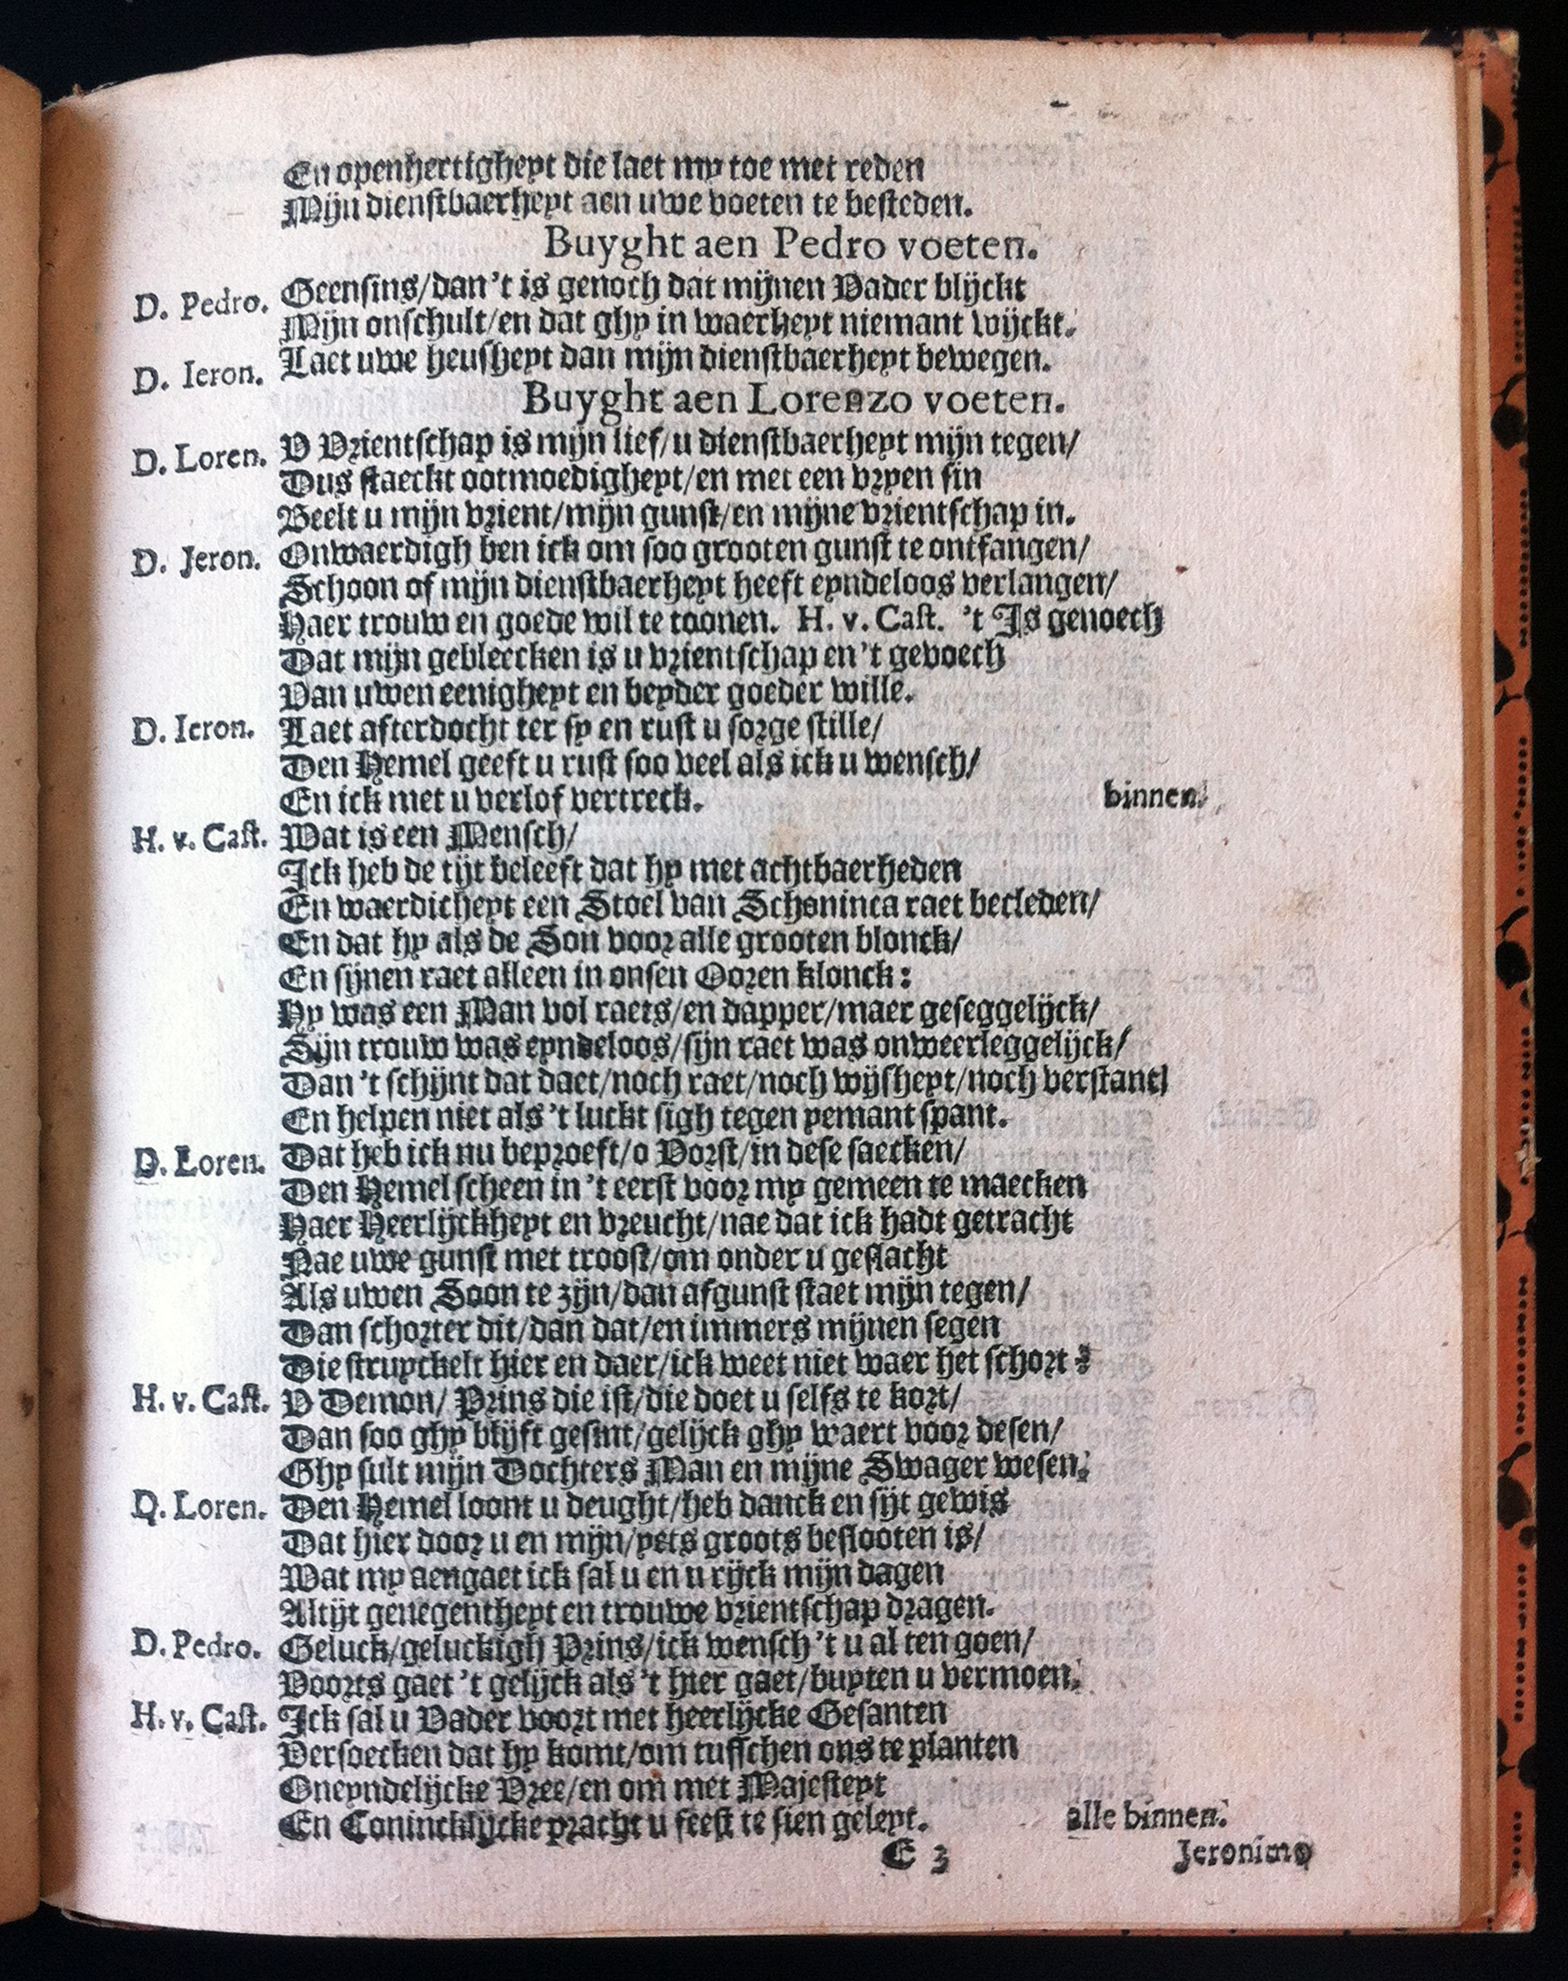 En openhertigheyt die laet my toe met reden
Mijn dienstbaerheyt aen uwe voeten te besteden.
Buyght aen Pedro voeten.
D. Pedro. Geensins/dan 't is genoch dat mijnen Vader blijckt
Mijn onschult/en dat ghy in waerheyt niemant wijckt.
D. Ieron. Laet uwe heusheyt dan mijn dienstbaerheyt bewegen.
Buyght aen Lorenzo voeten.
D. Loren. V Vrientschap is mijn lief/u dienstbaerheyt mijn tegen/
Dus staeckt ootmoedigheyt/en met een vryen sin
Beelt u mijn vrient/mijn gunst/en mijne vrientschap in.
D. Jeron. Onwaerdigh ben ick om soo grooten gunst te ontfangen/
Schoon of mijn dienstbaerheyt heeft eyndeloos verlangen/
Haer trouw en goede wil te toonen. H. v. Cast. 't Is genoech
Dat mijn gebleecken is u vrientschap en 't gevoech
Van uwen eenigheyt en beyder goeder wille.
D. Ieron. Laet afterdocht ter sy en rust u sorge stille/
Den Hemel geeft u rust soo veel als ick u wensch/
En ick met u verlof vertreck. binnen.
H. v. Cast. Wat is een Mensch/
Ick heb de tijt beleeft dat hy met achtbaerheden
En waerdicheyt een Stoel van Schoninca raet becleden/
En dat hy als de Son voor alle grooten blonck/
En sijnen raet alleen in onsen Ooren klonck:
Hy was een Man vol raets/en dapper/maer geseggelijck/
Sijn trouw was eyndeloos/sijn raet was onweerleggelijck/
Dan 't schijnt dat daet/noch raet/noch wijsheyt/noch verstant/
En helpen niet als 't luckt sigh tegen yemant spant.
D. Loren. Dat heb ick nu beproeft/o Vorst/in dese saecken/
Den Hemel scheen in 't eerst voor my gemeen te maecken
Haer Heerlijckheyt en vreucht/nae dat ick hadt getracht
Nae uwe gunst met troost/om onder u geslacht
Als uwen Soon te zijn/dan afgunst staet mijn tegen/
Dan schorter dit/dan dat/en immers mijnen segen
Die struyckelt hier en daer/ick weet niet waer het schort:
H. v. Cast. V Demon/ Prins die ist/die doet u selfs te kort/
Dan soo ghy blijft gesint/gelijck ghy waert voor desen/
Ghy sult mijn Dochters Man en mijne Swager wesen.
D. Loren. Den Hemel loont u deught/heb danck en sijt gewis
Dat hier door u en mijn/yets groots beslooten is/
Wat my aengaet ick sal u en u rijck mijn dagen
Altijt genegentheyt en trouwe vrientschap dragen.
D. Pedro. Geluck/geluckigh Prins/ick wensch 't u al ten goen/
Voorts gaet 't gelijck als 't hier gaet/buyten u vermoen.
H. v. Cast. Ick sal u Vader voort met heerlijcke Gesanten
Versoecken dat hy komt/om tusschen ons te planten
Oneyndelijcke Vree/en om met Majesteyt
En Conincklijcke pracht u feest te sien geleyt. alle binnen.
E 3 Jeronimo